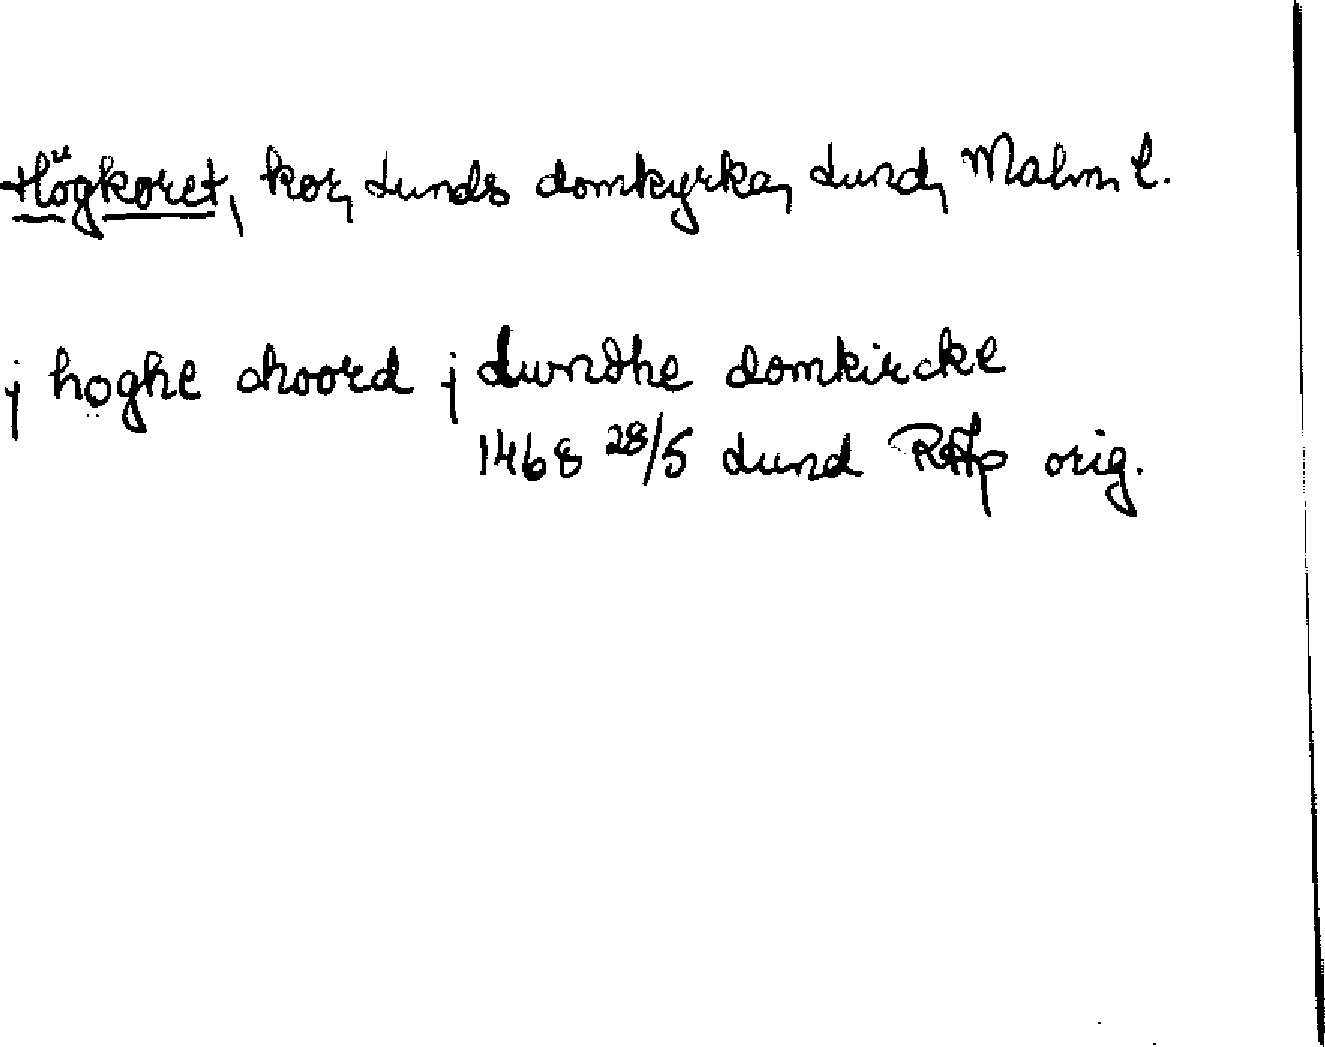 Högkoret, kor, Lunds domkyrka, Lund, Malm. l.
j hoghe choord j Lwndhe domkircke
1468 28/5 Lund RAp orig.